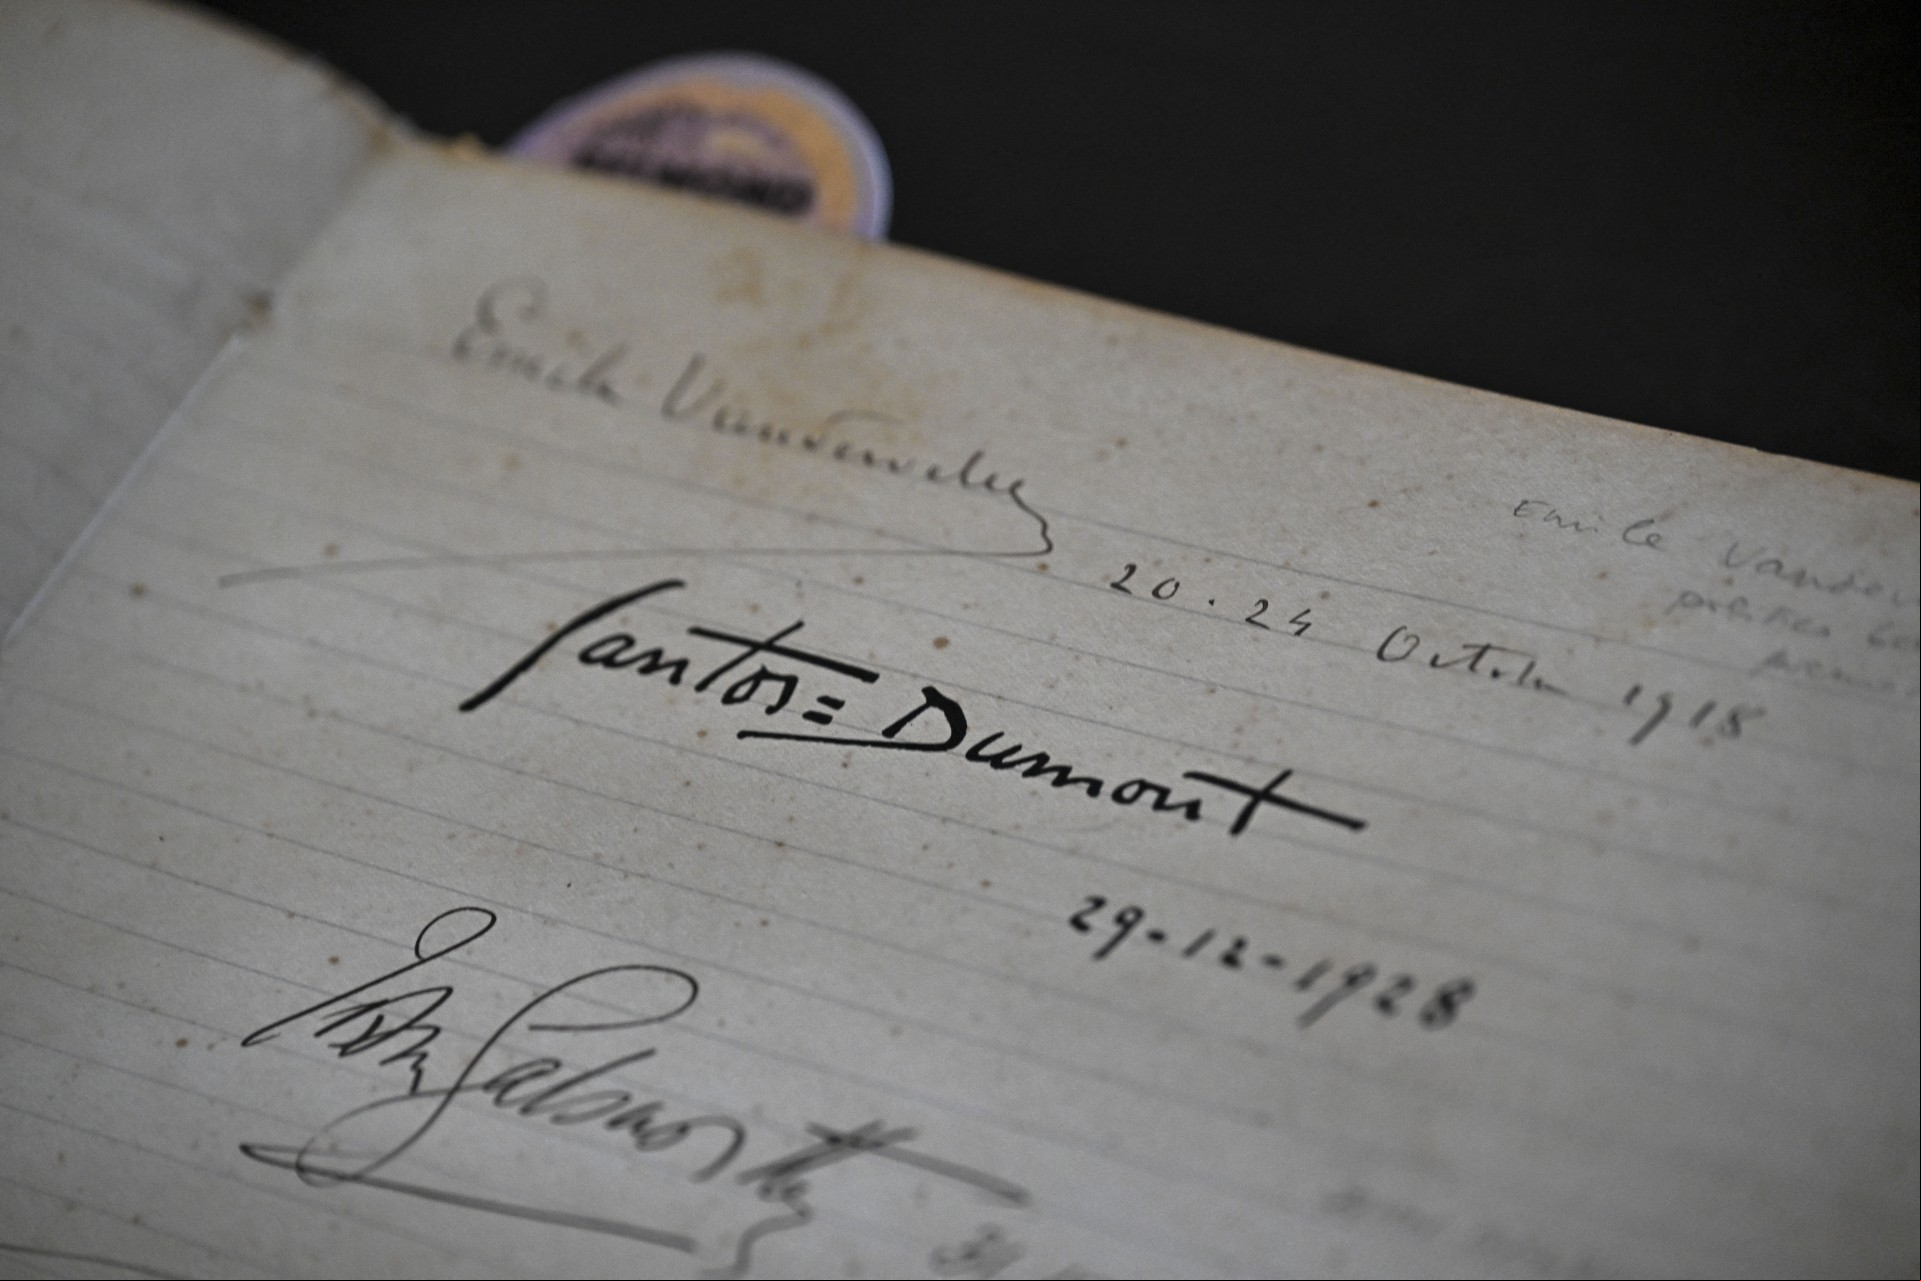 BELMOND
Emile Vandervelde
20.24 Octobre 1918
Emile Vander
Santos=Dumont
29-12-1928
John Galsworthy